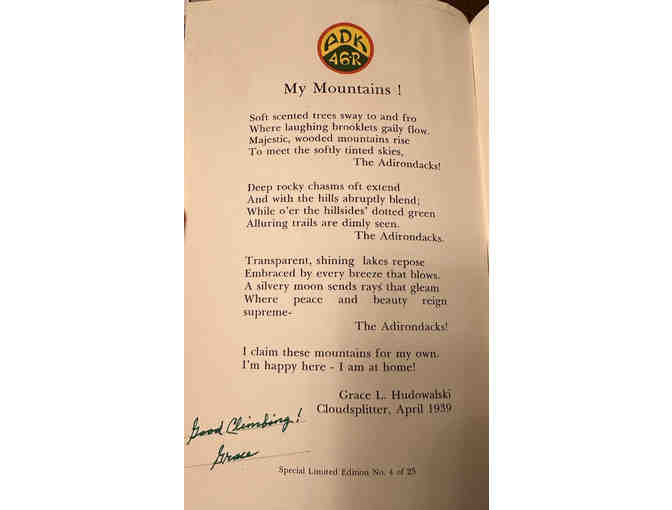 ADK
46-R
My Mountains !
Soft scented trees sway to and fro
Where laughing brooklets gaily flow.
Majestic, wooded mountains rise
To meet the softly tinted skies,
The Adirondacks!
Deep rocky chasms oft extend
And with the hills abruptly blend;
While o'er the hillsides' dotted green
Alluring trails are dimly seen.
The Adirondacks.
Transparent, shining lakes repose
Embraced by every breeze that blows.
A silvery moon sends rays that gleam
Where peace and beauty reign
supreme-
The Adirondacks!
I claim these mountains for my own.
I'm happy here - I am at home!
Grace L. Hudowalski
Cloudsplitter, April 1939
Good Climbing!
Grace
Special Limited Edition No. 4 of 25